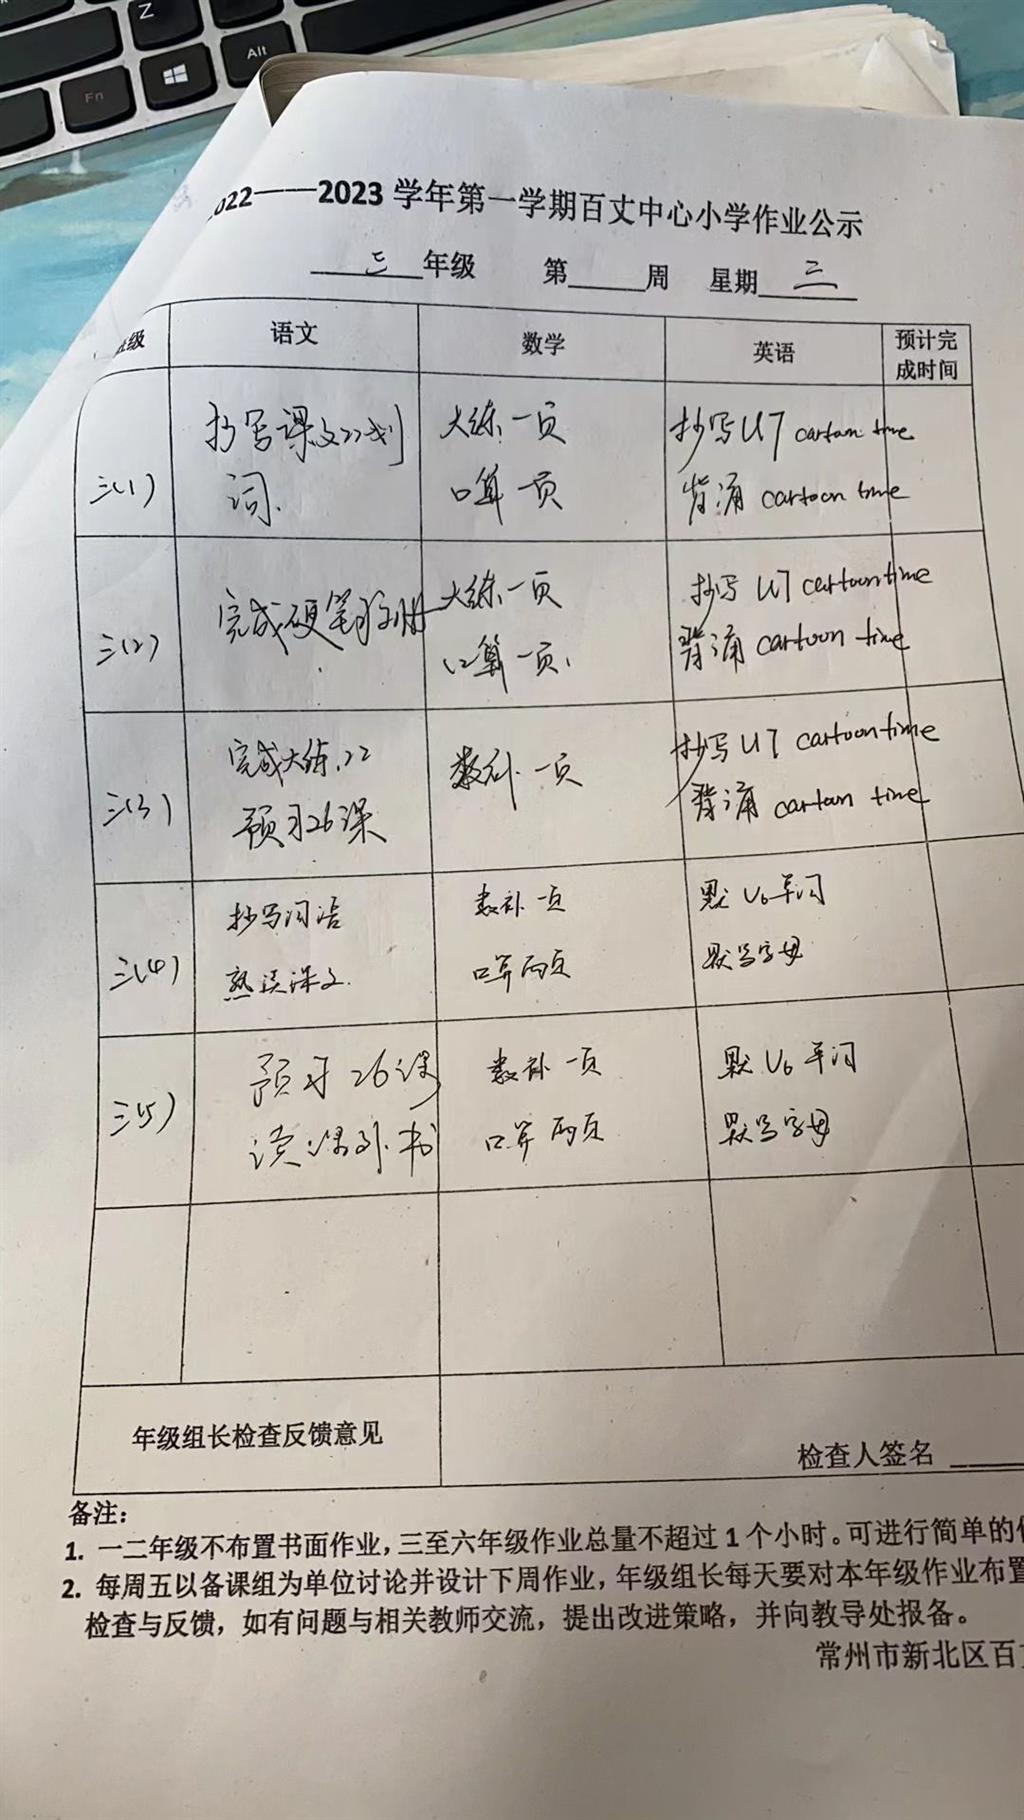 Z
Alt
Fn
2022——2023 学年第一学期百丈中心小学作业公示
三 年级 第 周 星期 三
班级 语文 数学 英语 预计完成时间
三(1)
抄写课文22划
词.
大练一页
口算一页
抄写U7 cartoon time
背诵 cartoon time
三(2)
完成硬笔习字册
大练一页
口算一页.
抄写 U7 cartoon time
背诵 cartoon time
三(3)
完成大练.22
预习26课
数补.一页
抄写U7 cartoon time
背诵 cartoon time
三(4)
抄写词语
熟读课文.
数补一页
口算两页
默U6单词
默写字母
三(5)
预习26课
读课外书
数补一页
口算两页
默U6单词
默写字母
年级组长检查反馈意见
检查人签名
备注:
1. 一二年级不布置书面作业,三至六年级作业总量不超过1个小时。可进行简单的
2. 每周五以备课组为单位讨论并设计下周作业,年级组长每天要对本年级作业布置
检查与反馈,如有问题与相关教师交流,提出改进策略,并向教导处报备。
常州市新北区百